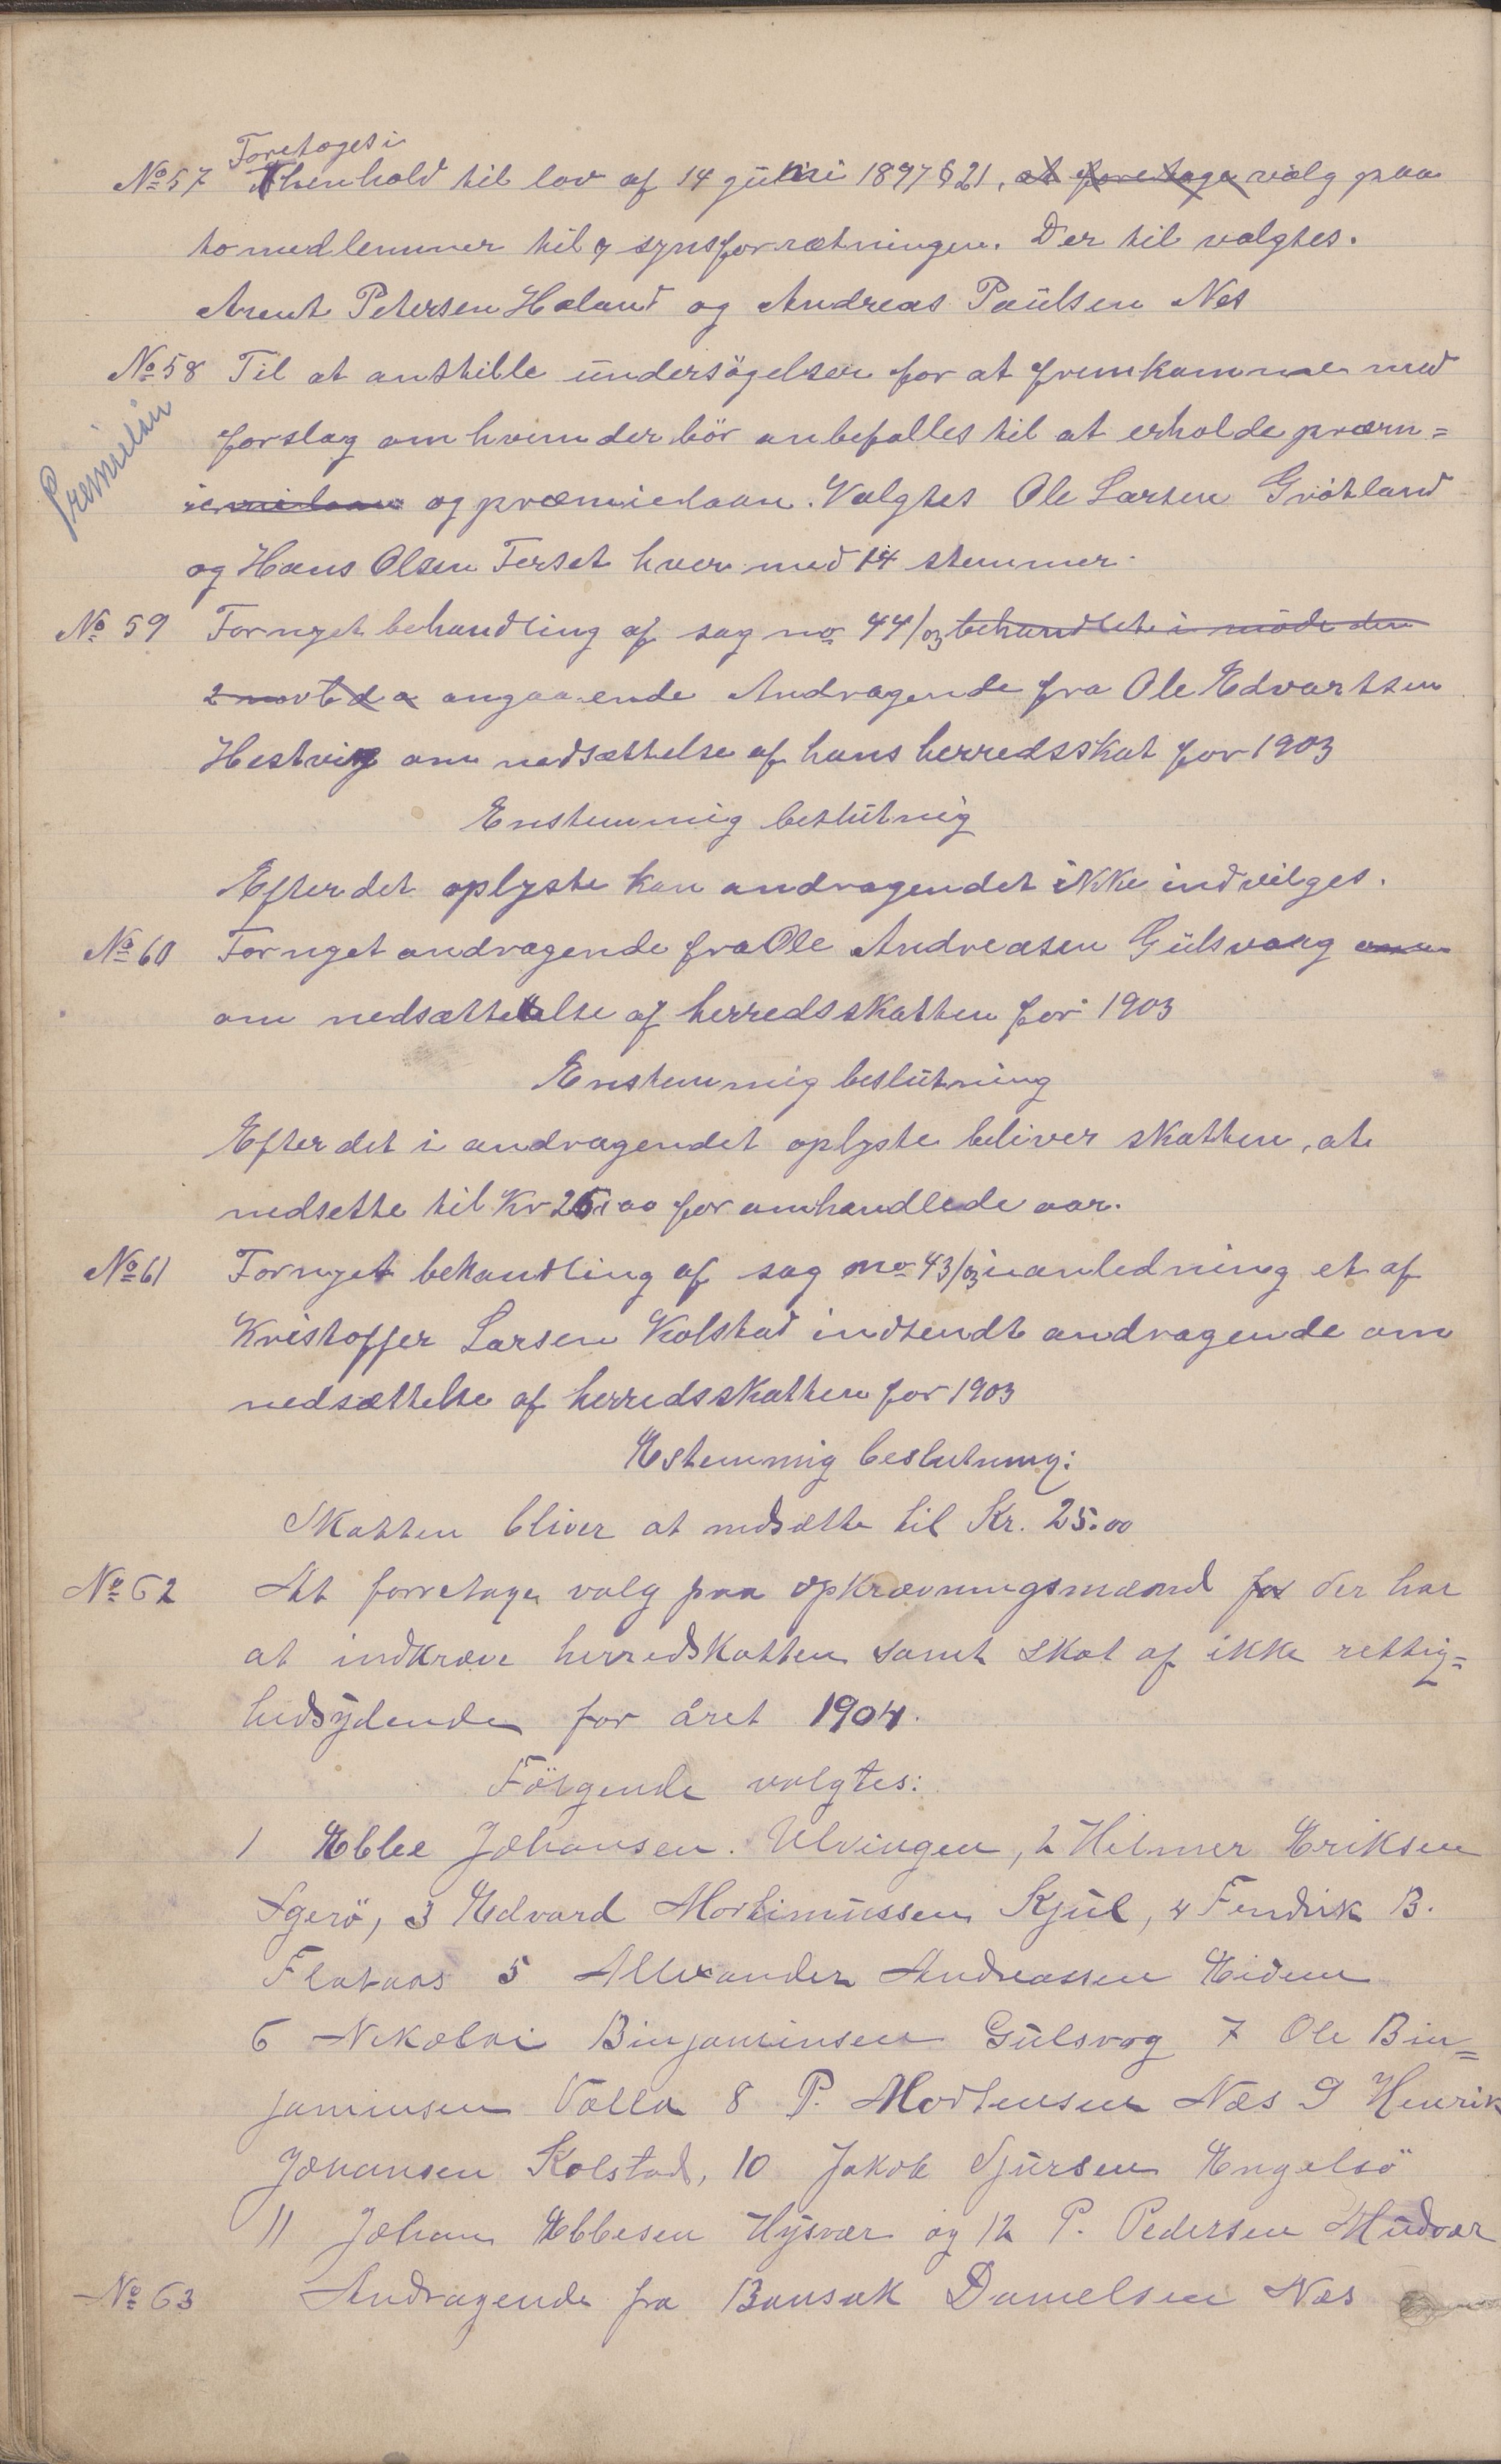 Foretoges i
No 57 Ihenhold til lov af 14 juni 1897 § 21, at foretage valg paa
to medlemmer til synsforrætningen. Der til valgtes.
Arent Petersen Haland og Andreas Paulsen Nes
No 58 Til at anstille undersögelser for at fremkomme med
Premielån
forslag om hvem der bör anbefalles til at erholde præm=
ie og præmielaan. Valgtes Ole Larsen Grötland
og Hans Olsen Forset hver med 14 stemmer.
No 59 Fornyet behandling af sag no 44/03 behandlet i möde den
angaaende Andragende fra Ole Edvartsen
Hestvig om nedsættelse af hans herredsskat for 1903
Enstemmig beslutnig
Efter det oplyste kan andragendet ikke indvilges.
No 60 Fornyet andragende fra Ole Andreasen Gulsvaag
om nedsættelse af herredsskatten for 1903
Enstemmig beslutning
Efter det i andragendet oplyste beliver skatten, at
nedsette til Kr 25,00 for omhandlede aar.
No 61 Fornyet behandling af sag no 43/03 i anledning et af
Kristoffer Larsen Kolstad indsendt andragende om
nedsættelse af herredsskatten for 1903
Estemmig beslutning:
Skatten bliver at nedsætte til Kr. 25.00
No 62 At forretage valg paa opkrævningsmænd for der har
at indkræve herredskatten samt skat af ikke rettig=
hedsydende for året 1904.
Fölgende valgtes:
1 Ebbe Johansen. Ulvingen, 2 Hilmer Eriksen
Igerö, 3 Edvard Mortimussen Skjul, 4 Fendrik B.
Flataas 5 Allexander Andreassen Eidem
6 Nikolai Binjaminsen Gulsvog 7 Ole Bin=
jaminsen Valla 8 P. Mortensen Næs 9 Henrik
Johansen Kolstad, 10 Jakob Sjursen Engelsö
11 Johan Ebbesen Hysvær og 12 P. Pedersen Mudvær
No 63 Andragende fra Bansak Danielsen Næs